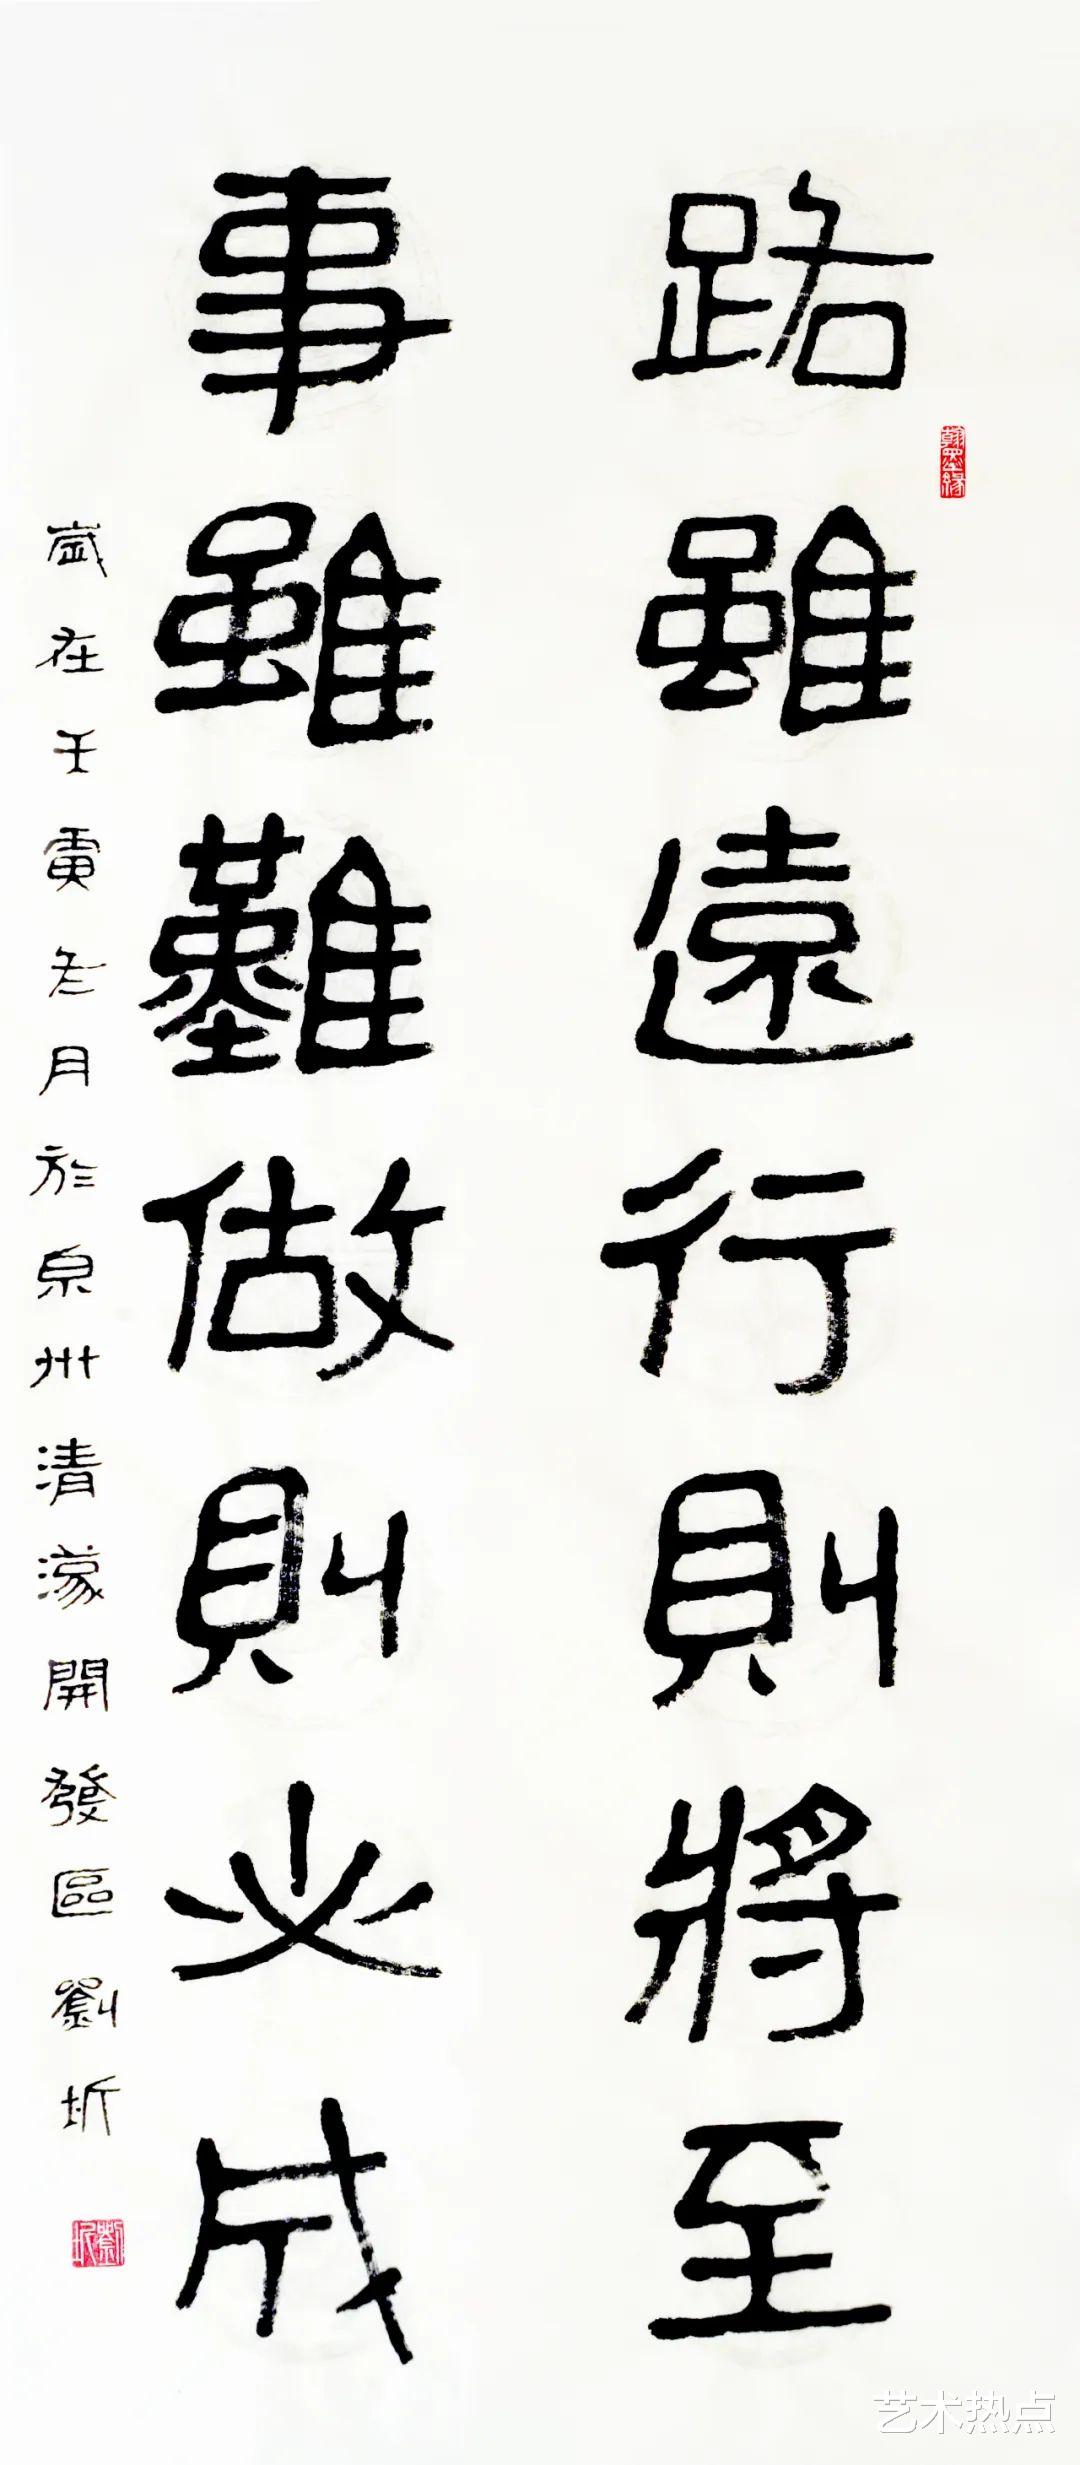 路雖遠行則將至
事雖難做則必成
歲在壬寅冬月於泉州清濛開發區劉圻
翰墨緣
劉圻
艺术热点